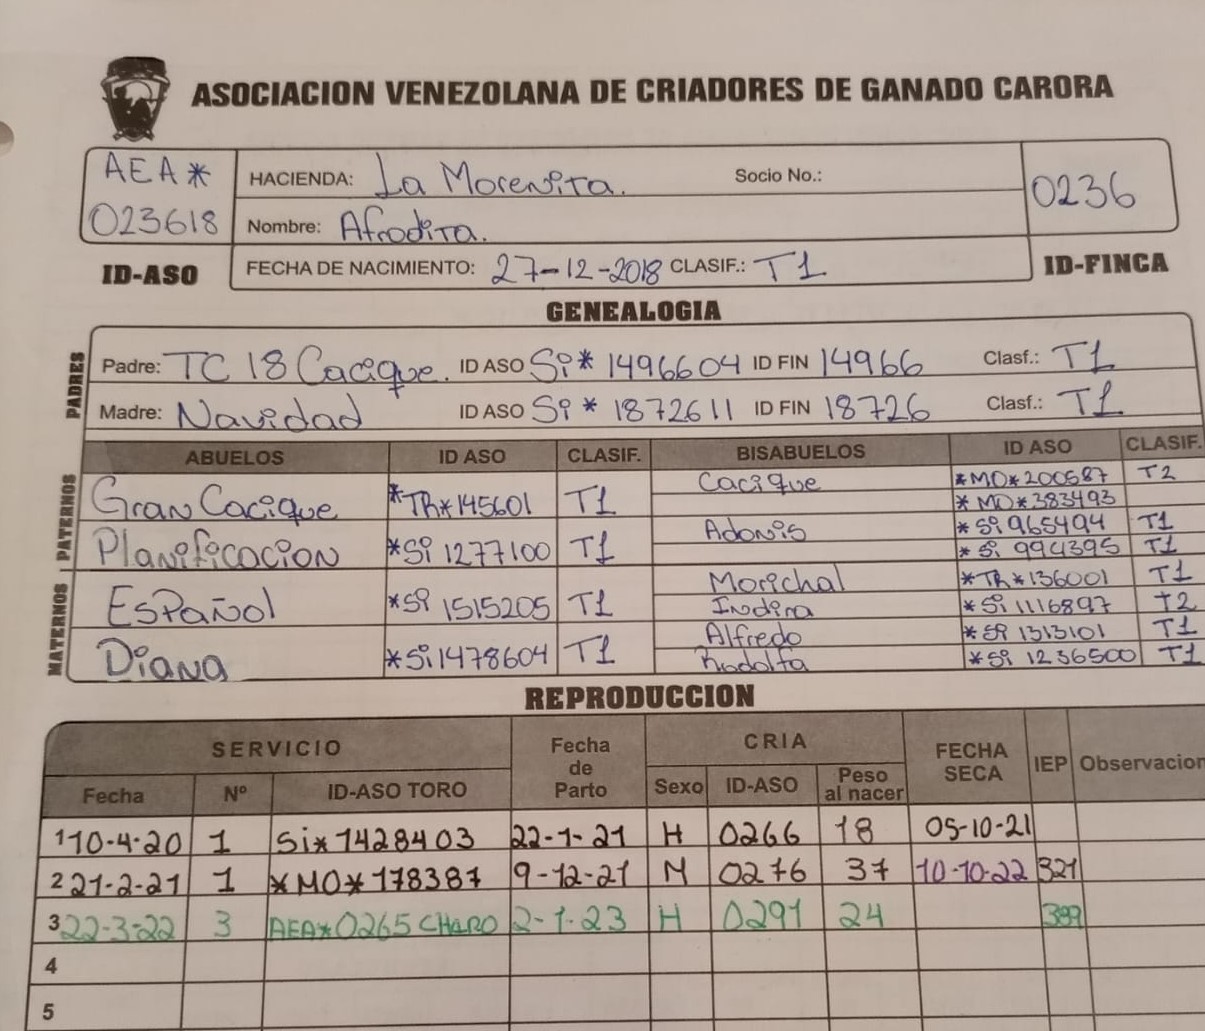 ASOCIACION VENEZOLANA DE CRIADORES DE GANADO CARORA
AEA*
023618
ID-ASO
HACIENDA: La Morenita. Socio No.:
Nombre: Afrodita.
FECHA DE NACIMIENTO: 27-12-2018 CLASIF.: T1
0236
ID-FINCA
GENEALOGIA
PADRES
Padre: TC 18 Cacique. ID ASO Si* 1496604 ID FIN 14966 Clasf.: T1
Madre: Navidad ID ASO Si * 1872611 ID FIN 18726 Clasf.: T1
ABUELOS ID ASO CLASIF. BISABUELOS ID ASO CLASIF.
MATERNOS | PATERNOS
Gran Cacique *TR*145601 T1
Planificacion *Si 1277100 T1
Español *Si 1515205 T1
Diana *Si1478604 T1
Cacique *MO*200587 T2
*MO*383493
Adonis *Si 965494 T1
*Si 994395 T1
Morichal *TR*136001 T1
Indira *Si 1116897 T2
Alfredo *Si 1313101 T1
Rodolfa *Si 1236500 T1
REPRODUCCION
SERVICIO Fecha de Parto CRIA FECHA SECA IEP Observacion
Fecha Nº ID-ASO TORO Sexo ID-ASO Peso al nacer
1 10-4-20 1 Si*1428403 22-1-21 H 0266 18 05-10-21
2 21-2-21 1 *MO*178387 9-12-21 M 0276 37 10-10-22 321
3 22-3-22 3 AEA*0265 CHARO 2-1-23 H 0291 24
4
5